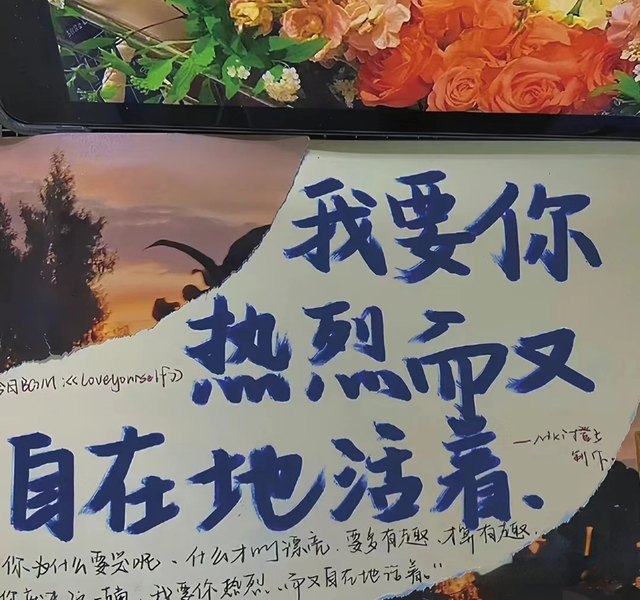 我要你
热烈而又
今日BGM:<<loveyourself>>
自在地活着、
制作。
你为什么要哭呢、什么才叫漂亮.要多有趣、才算有趣.
我要你热烈..而又自在地活着."